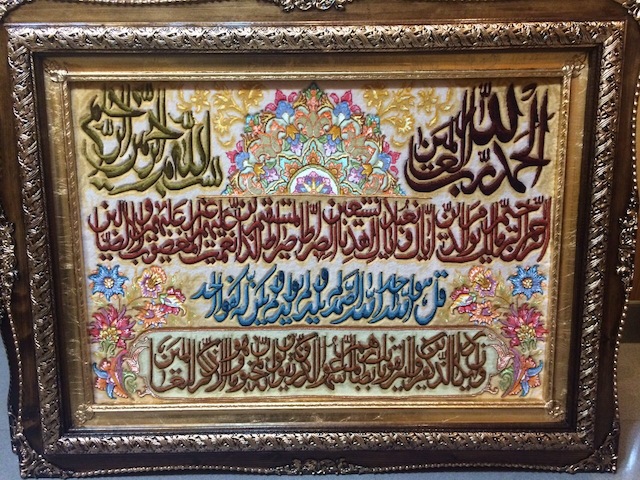 بسم الله الرحمن الرحيم
الحمد لله رب العالمين
الرحمن الرحيم مالك يوم الدين اياك نعبد واياك نستعين اهدنا الصراط المستقيم صراط الذين انعمت عليهم غير المغضوب عليهم ولا الضالين
قل هو الله احد الله الصمد لم يلد ولم يولد ولم يكن له كفوا احد
وان يكاد الذين كفروا ليزلقونك بابصارهم لما سمعوا الذكر ويقولون انه لمجنون وما هو الا ذكر للعالمين